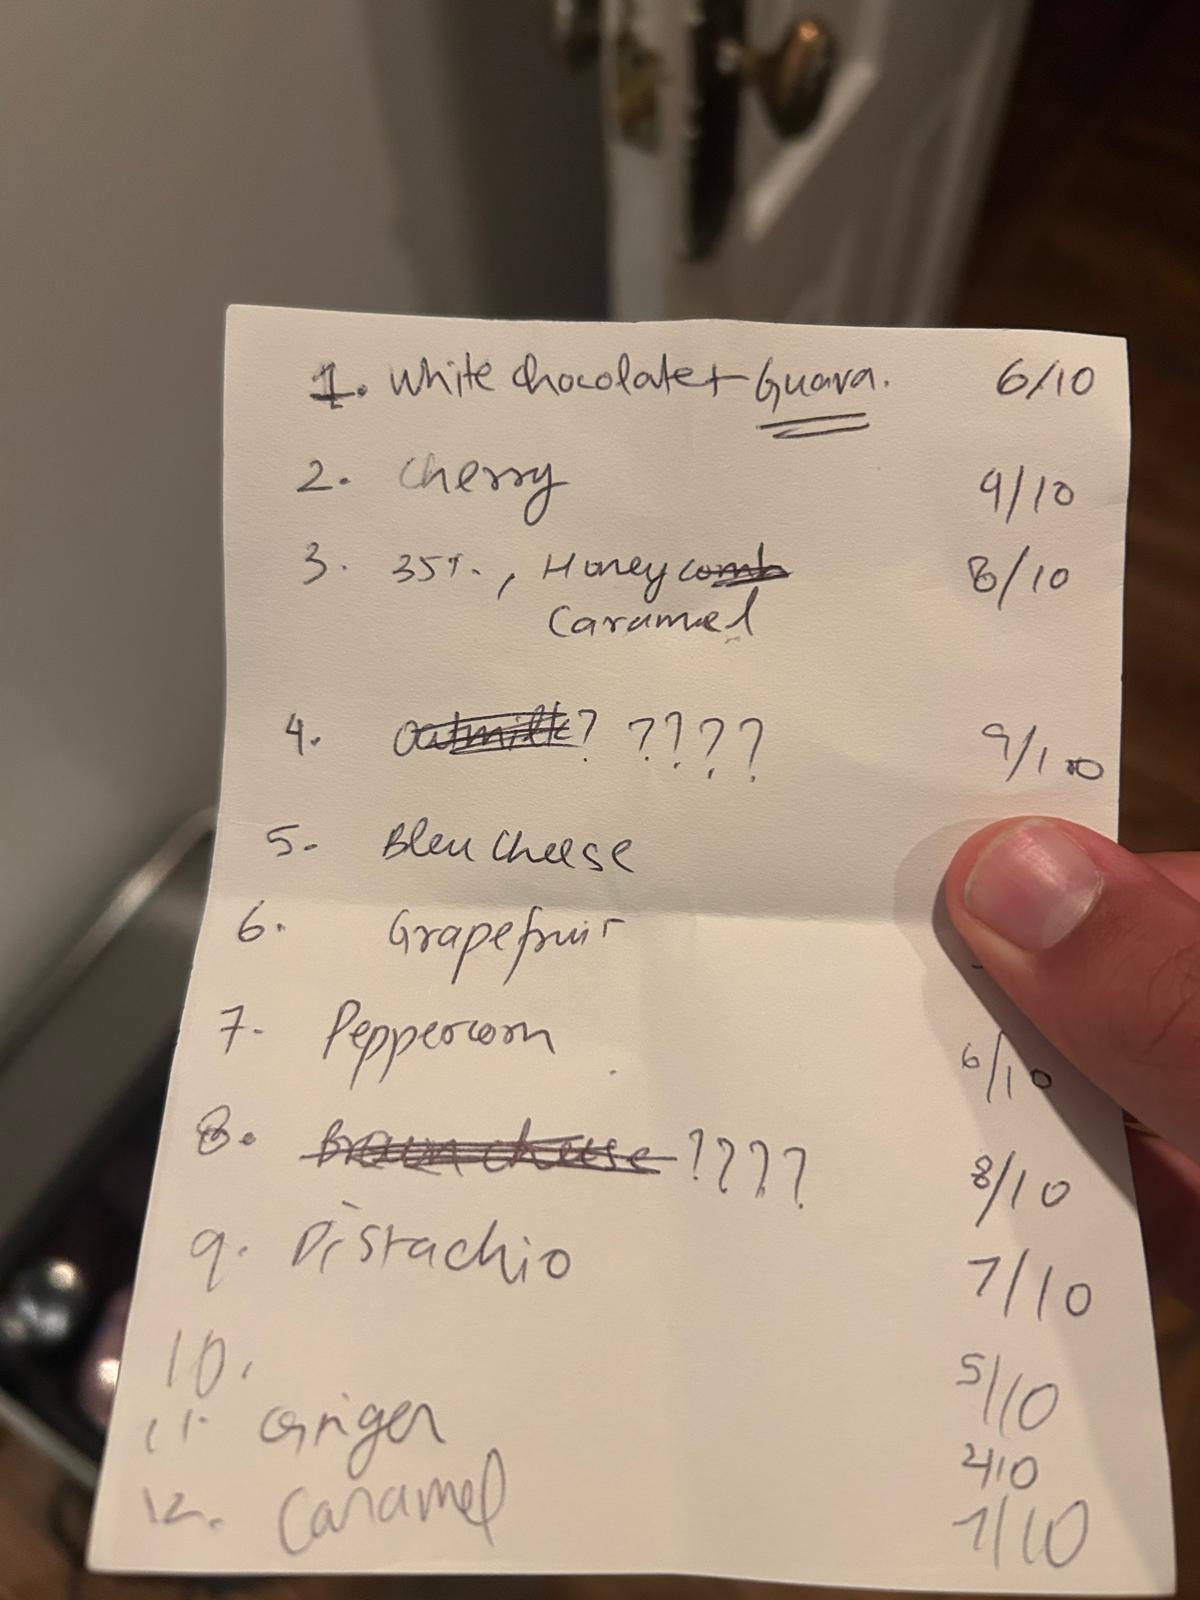 1. White chocolate + Guava. 6/10
2. Cherry 9/10
3. 35%, Honeycomb 8/10
Caramel
4. Oatmilk? ???? 9/10
5. Bleu Cheese
6. Grapefruit
7. Peppercorn 6/10
8. Brown cheese ???? 8/10
9. Pistachio 7/10
10. 5/10
11. Ginger 410
12. Caramel 7/10